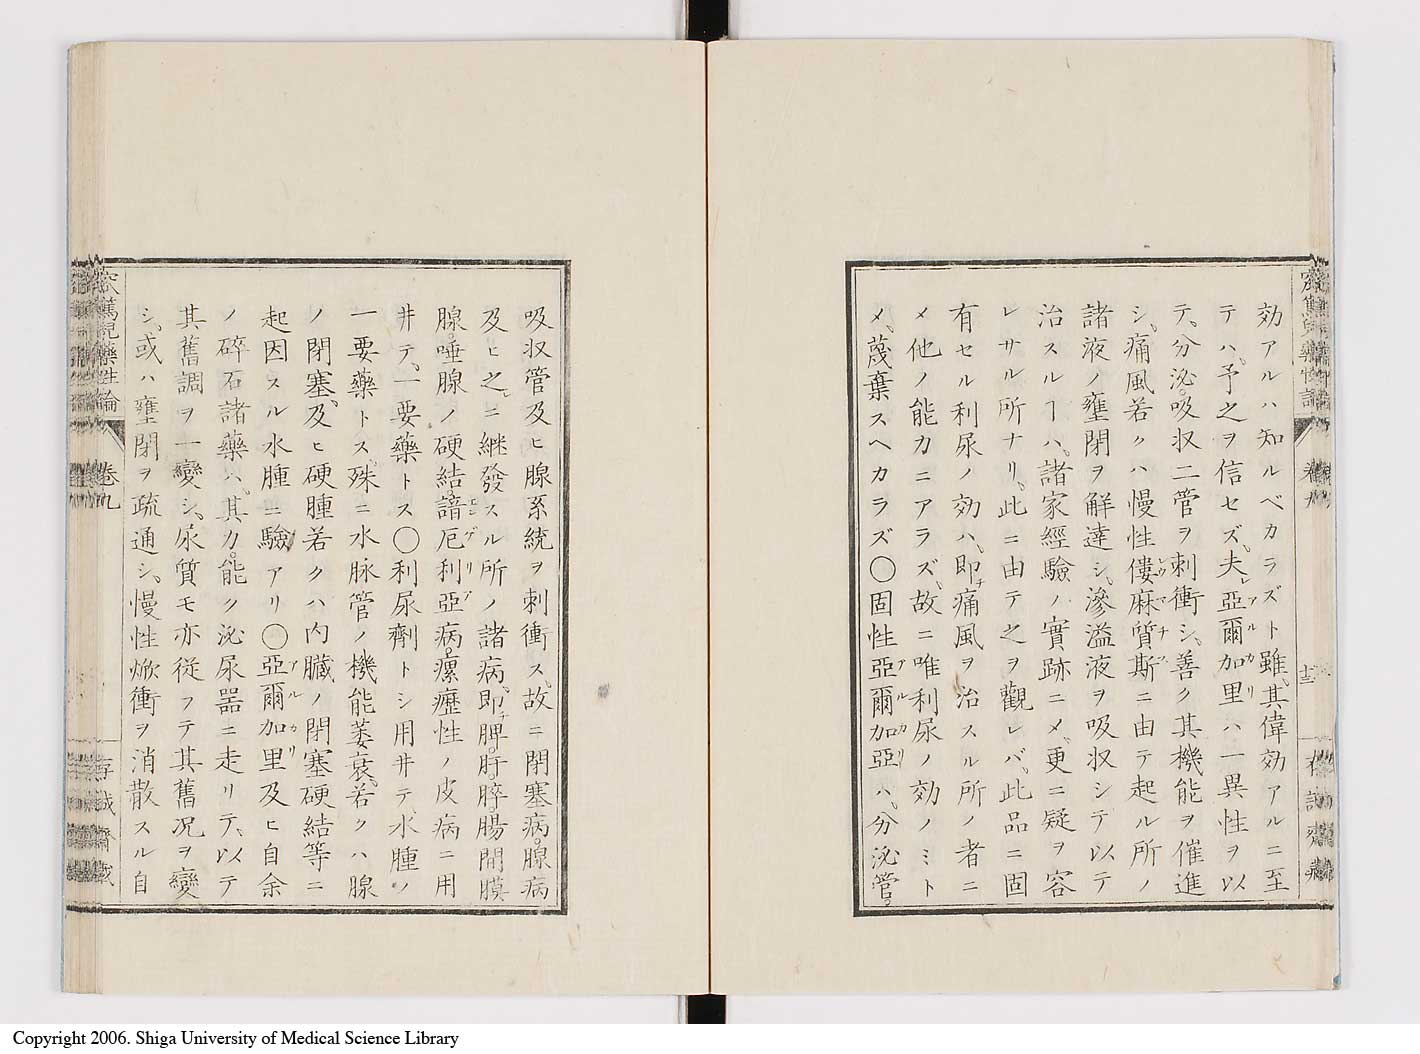 効アルハ知ルベカラズト雖、其偉効アルニ至
テハ、予之ヲ信セズ、夫レ亞爾加里ハ一異性ヲ以
テ、分泌。吸収二管ヲ刺衝シ、善ク其機能ヲ催進
シ、痛風若クハ慢性僂麻質斯ニ由テ起ル所ノ
諸液ノ壅閉ヲ解達シ、滲溢液ヲ吸収シテ以テ
治スルヿハ、諸家經驗ノ實跡ニメ、更ニ疑ヲ容
レサル所ナリ、此ニ由テ之ヲ觀レバ、此品ニ固
有セル利尿ノ効ハ、即チ痛風ヲ治スル所ノ者ニ
メ他ノ能力ニアラズ、故ニ唯利尿ノ効ノミト
メ、蔑棄スヘカラズ〇固性亞爾加亞ハ、分泌管。
吸収管及ヒ腺系統ヲ刺衝ス、故ニ閉塞病。腺病
及ヒ之ニ継發スル所ノ諸病、即チ脾。肝。膵。腸間膜
腺。唾腺ノ硬結諳厄利亞病。瘰癧性ノ皮病ニ用
井テ、一要藥トス〇利尿劑トシ用井テ、水腫ノ
一要藥トス、殊ニ水脉管ノ機能萎衰、若クハ腺
ノ閉塞、及ヒ硬腫若クハ内臓ノ閉塞硬結等ニ
起因スル水腫ニ驗アリ〇亞爾加里及ヒ自余
ノ碎石諸藥ハ、其力。能ク泌尿器ニ走リテ、以テ
其舊調ヲ一變シ、尿質モ亦従フテ其舊況ヲ變
シ、或ハ壅閉ヲ疏通シ、慢性焮衝ヲ消散スル自
卷九
Copyright 2006. Shiga University of Medical Science Library